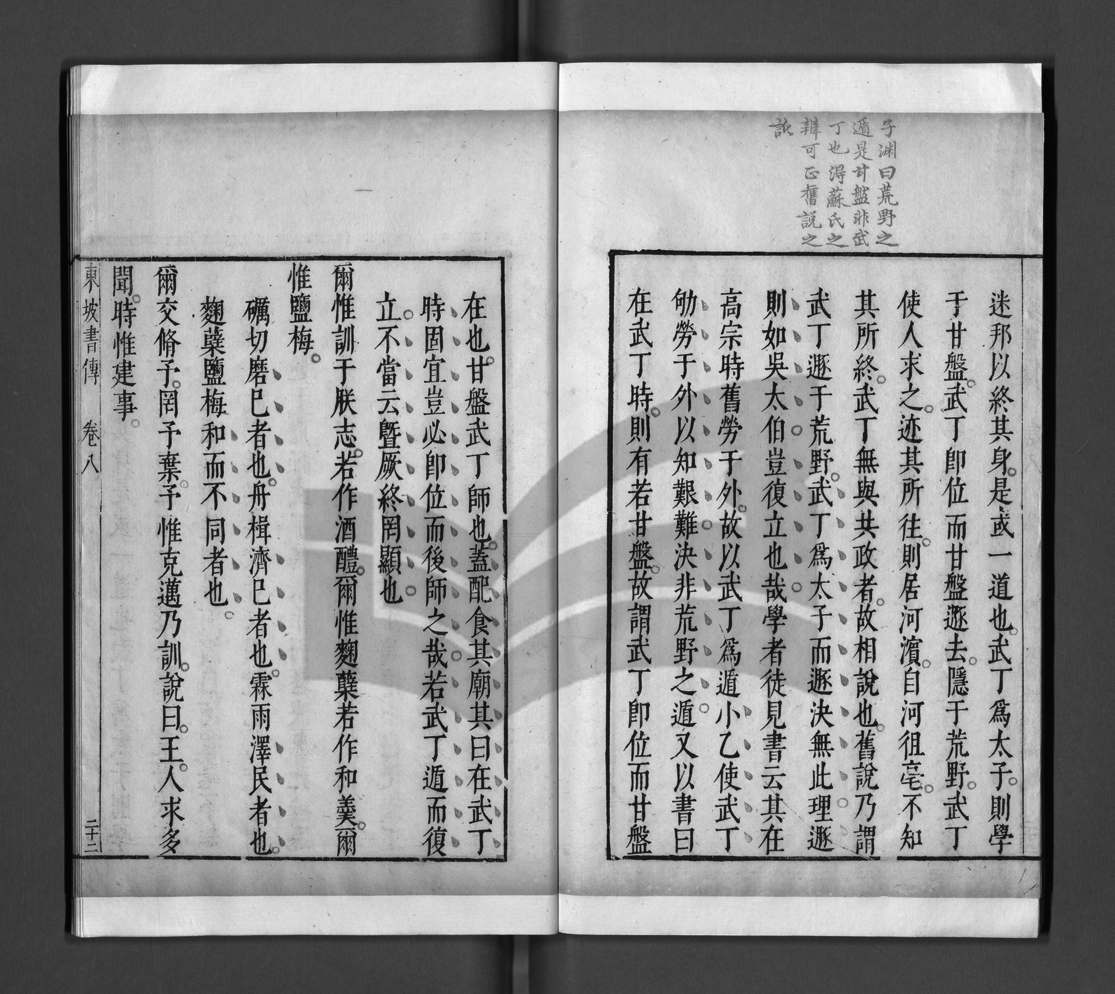 子淵曰荒野之
遁是甘盤非武
丁也得蘇氏之
辯可正舊說之
訛
迷邦以終其身是或一道也武丁爲太子則學
于甘盤武丁卽位而甘盤遯去隱于荒野武丁
使人求之迹其所往則居河濵自河徂亳不知
其所終武丁無與共政者故相說也舊說乃謂
武丁遯于荒野武丁爲太子而遯決無此理遯
則如吳太伯豈復立也哉學者徒見書云其在
高宗時舊勞于外故以武丁爲遁小乙使武丁
劬勞于外以知艱難決非荒野之遁又以書曰
在武丁時則有若甘盤故謂武丁卽位而甘盤
在也甘盤武丁師也蓋配食其廟其曰在武丁
時固宜豈必卽位而後師之哉若武丁遁而復
立不當云曁厥終罔顯也
爾惟訓于朕志若作酒醴爾惟麴糵若作和羹爾
惟鹽梅
礪切磨已者也舟楫濟已者也霖雨澤民者也
麴糵鹽梅和而不同者也
爾交脩予罔予棄予惟克邁乃訓說曰王人求多
聞時惟建事
東坡書傳 卷八 二十二